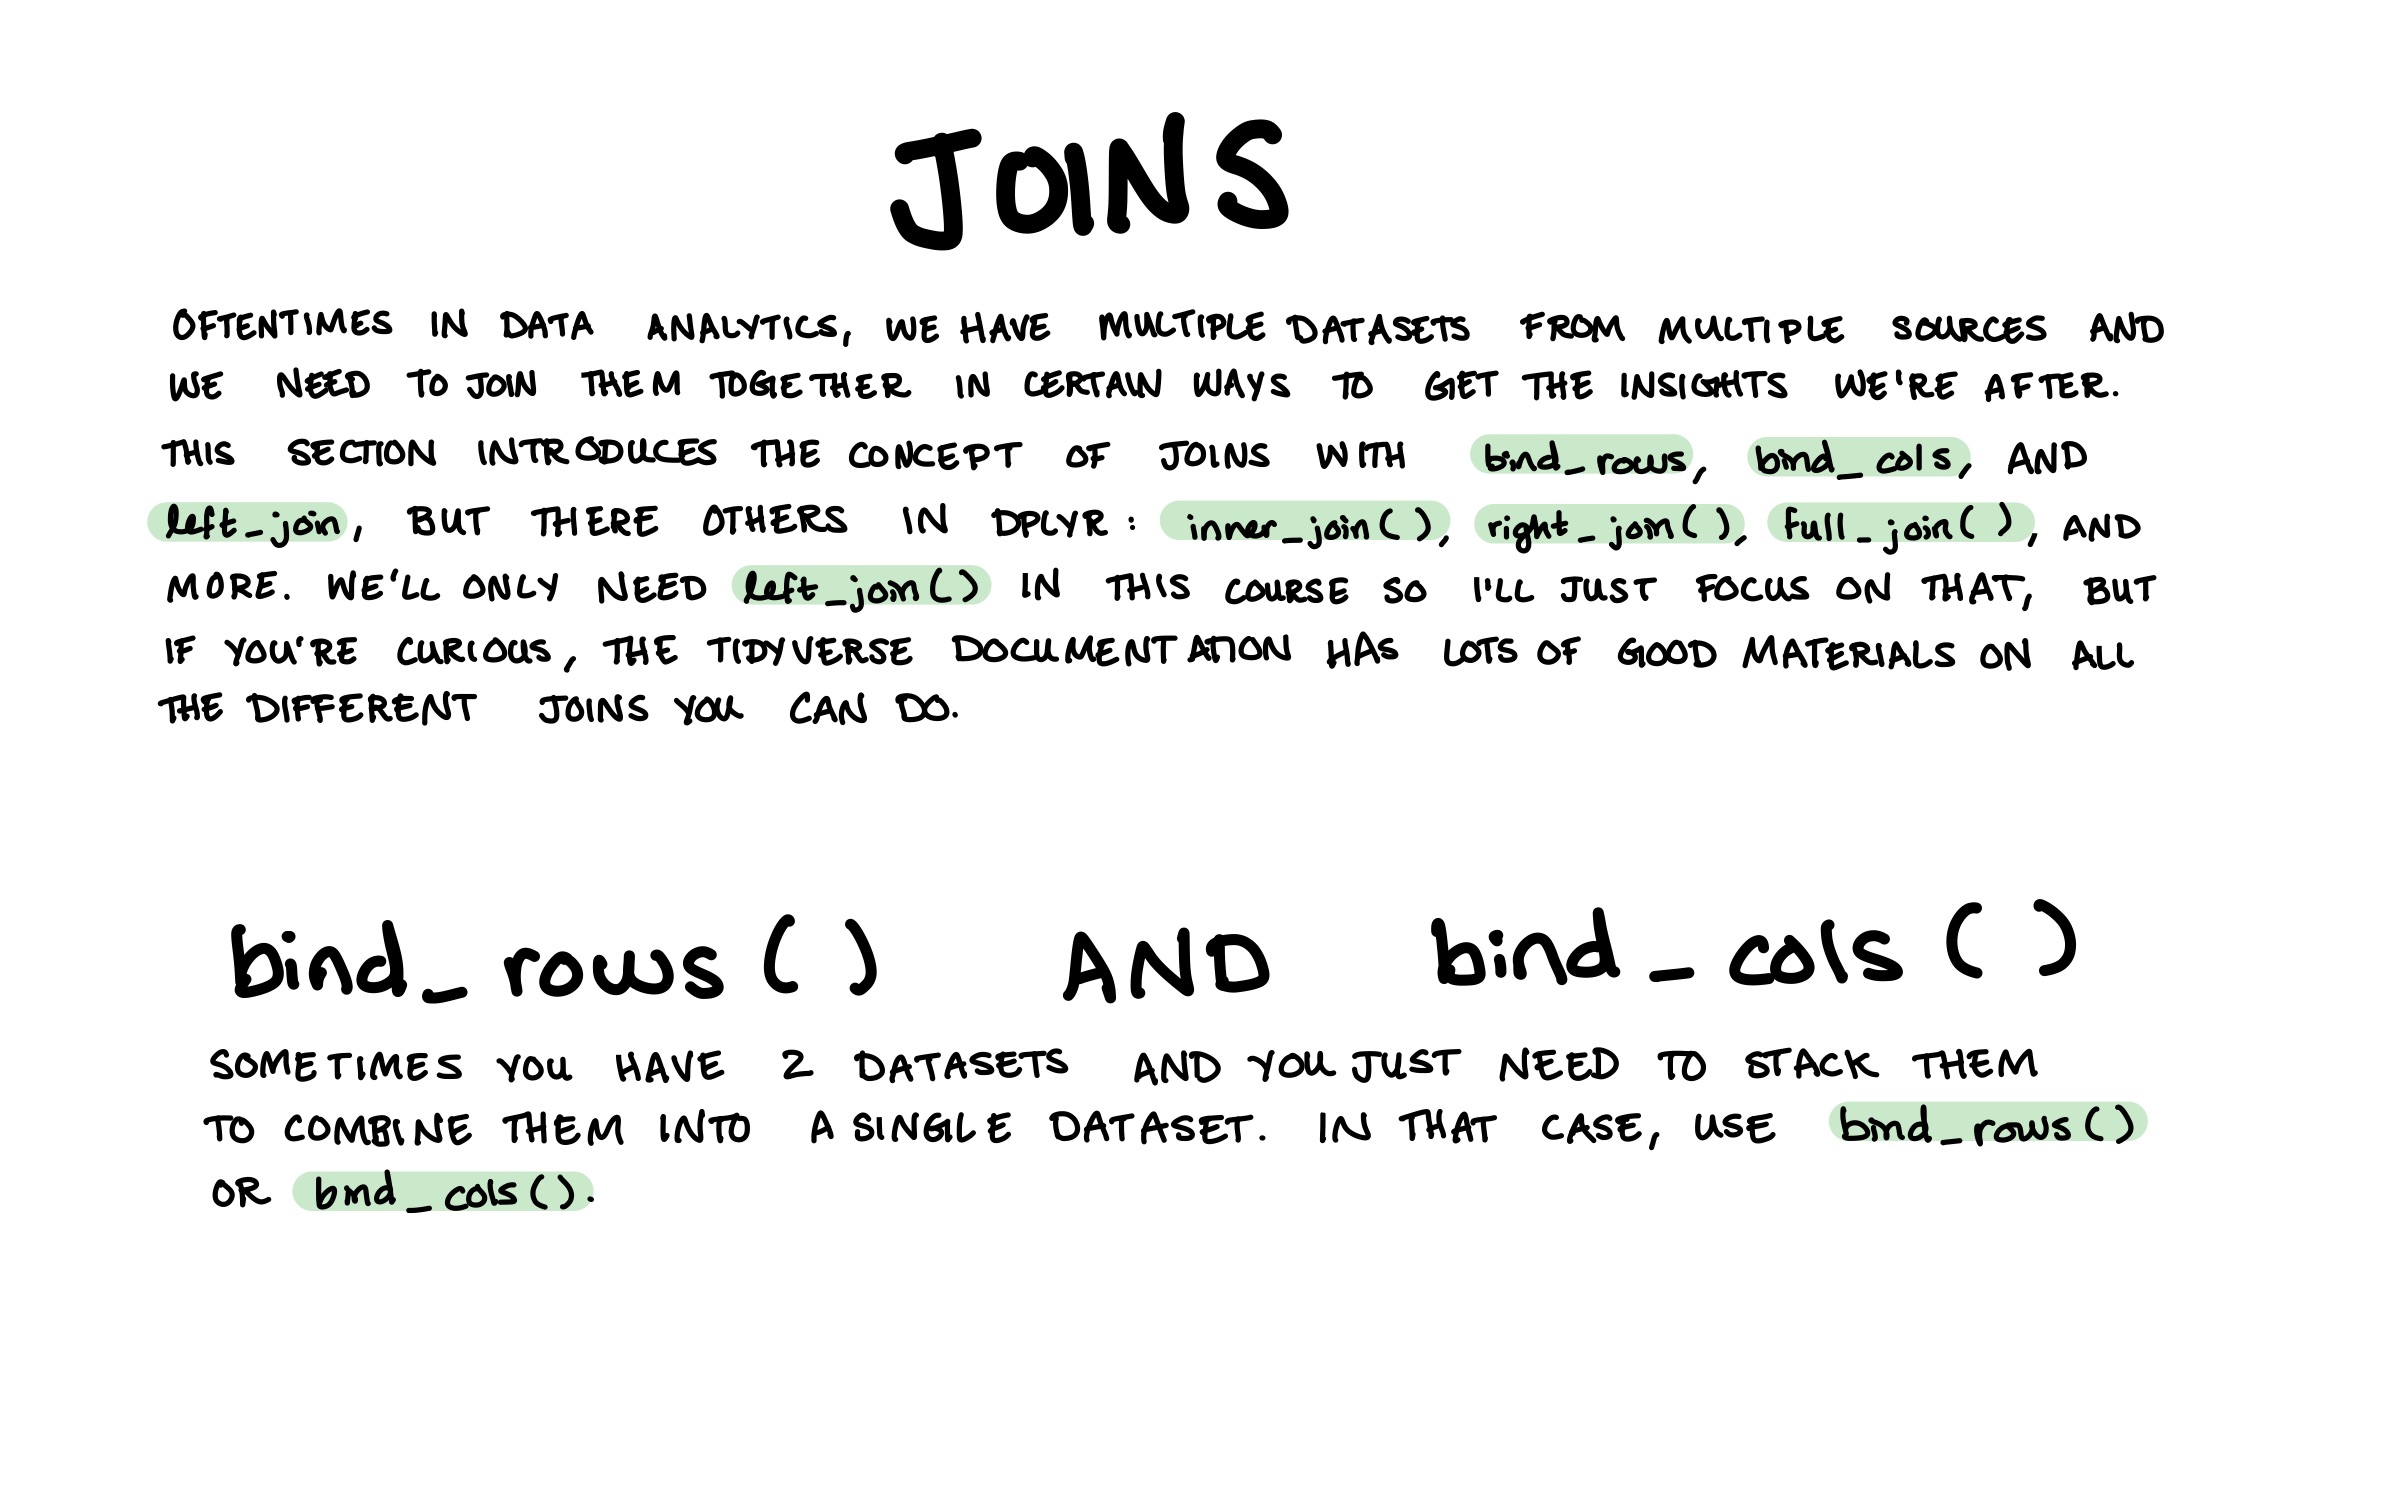 JOINS
OFTENTIMES IN DATA ANALYTICS, WE HAVE MULTIPLE DATASETS FROM MULTIPLE SOURCES AND
WE NEED TO JOIN THEM TOGETHER IN CERTAIN WAYS TO GET THE INSIGHTS WE'RE AFTER.
THIS SECTION INTRODUCES THE CONCEPT OF JOINS WITH bind_rows, bind_cols, AND
left_join, BUT THERE OTHERS IN DPLYR: inner_join(), right_join(), full_join(), AND
MORE. WE'LL ONLY NEED left_join() IN THIS COURSE SO I'LL JUST FOCUS ON THAT, BUT
IF YOU'RE CURIOUS, THE TIDYVERSE DOCUMENTATION HAS LOTS OF GOOD MATERIALS ON ALL
THE DIFFERENT JOINS YOU CAN DO.
bind_rows() AND bind_cols()
SOMETIMES YOU HAVE 2 DATASETS AND YOU JUST NEED TO STACK THEM
TO COMBINE THEM INTO A SINGLE DATASET. IN THAT CASE, USE bind_rows()
OR bind_cols().